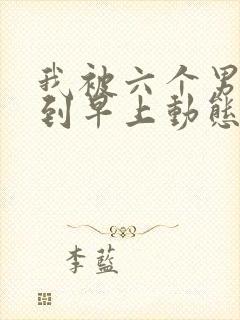 我被六个男
到早上動態
李藍